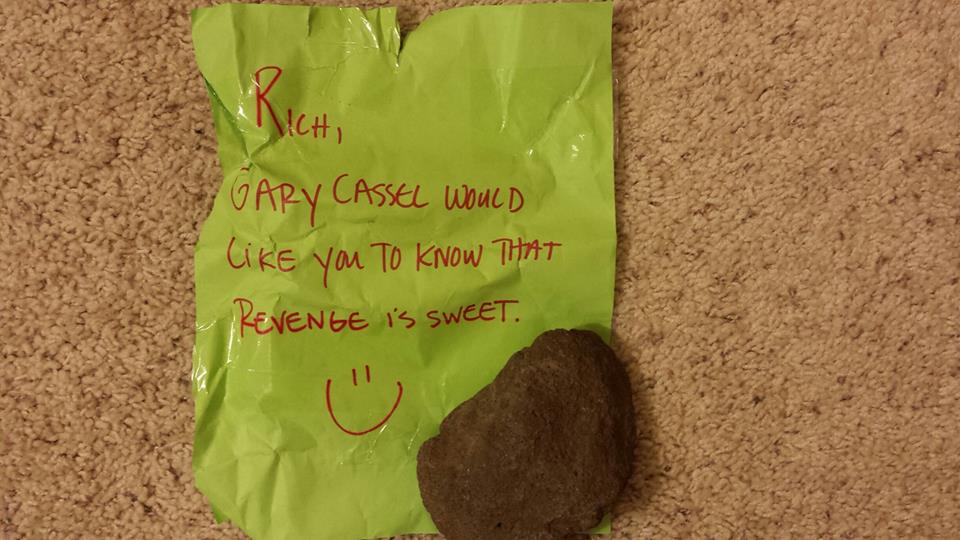 RICH,
GARY CASSEL WOULD
LIKE YOU TO KNOW THAT
REVENGE IS SWEET.